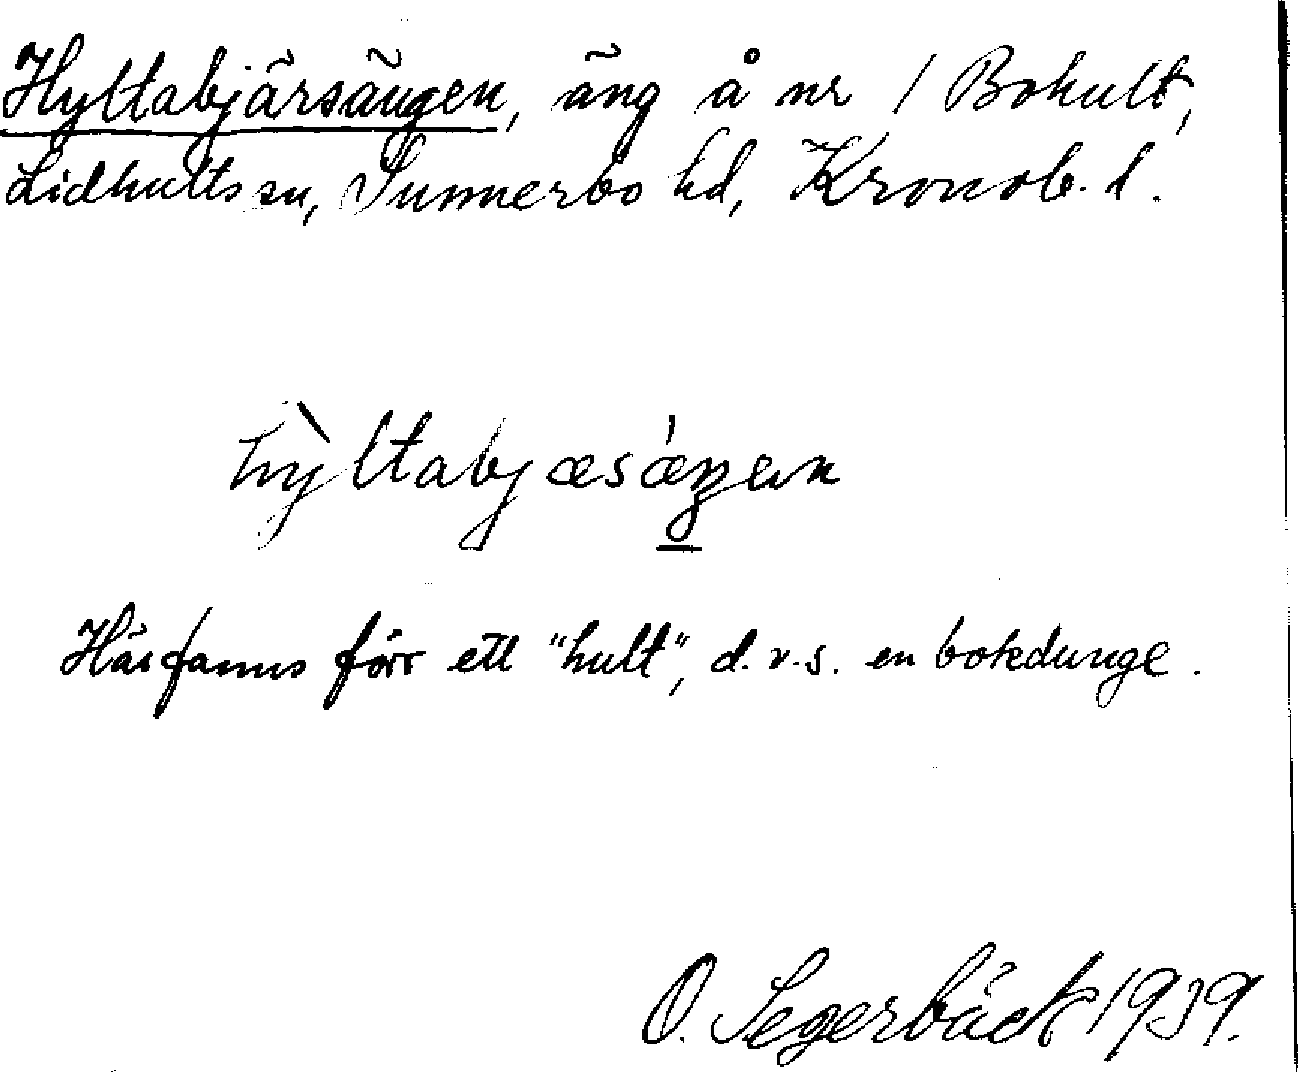 Hyltabjärsängen, äng å nr 1 Bohult,
Lidhults sn, Sunnerbo hd, Kronob. l.
hỳltabjæsǽŋen
Här fanns förr ett "hult", d.v.s. en bokdunge.
O. Segerbäck 1939.